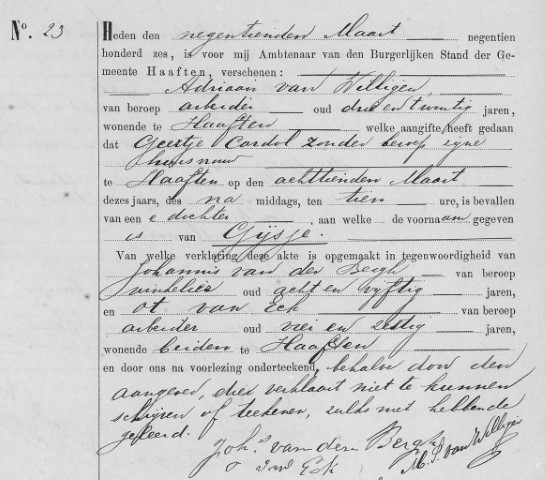 No. 23
Heden den negentienden Maart negentien
honderd zes, is voor mij Ambtenaar van den Burgerlijken Stand der Ge-
meente Haaften, verschenen:
Adriaan van Willigen,
van beroep arbeider oud drie en twintig jaren,
wonende te Haaften welke aangifte heeft gedaan
dat Geertje Cardol zonder beroep zyne
huisvrouw
te Haaften op den achttienden Maart
dezes jaars, des na middags, ten tien ure, is bevallen
van een e dochter aan welke de voornaam gegeven
is van Gijsje.
Van welke verklaring deze akte is opgemaakt in tegenwoordigheid van
Johannis van den Bergh van beroep
winkelier oud acht en vyftig jaren,
en Ot van Eck van beroep
arbeider oud vier en zestig jaren,
wonende beiden te Haaften
en door ons na voorlezing onderteekend, behalve door den
aangever, die verklaart niet te kunnen
schrijven of teekenen, zulks niet hebbende
geleerd.
Joh.s van den Bergh
O van Eck
van Willigen